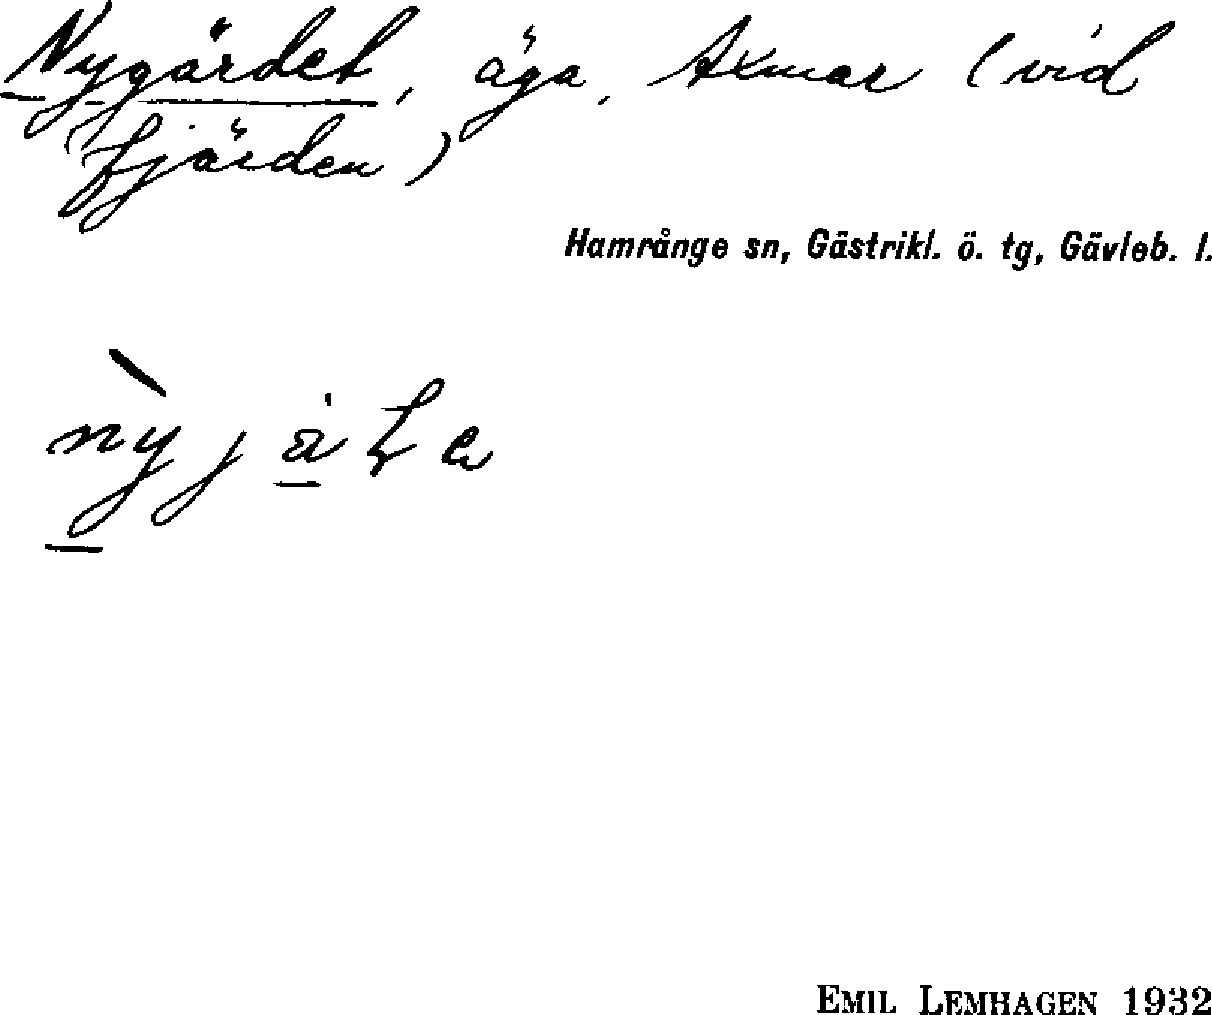 Nygärdet, äga, Axmar (vid
fjärden)
Hamrånge sn, Gästrikl. ö. tg, Gävleb. l.
EMIL LEMHAGEN 1932